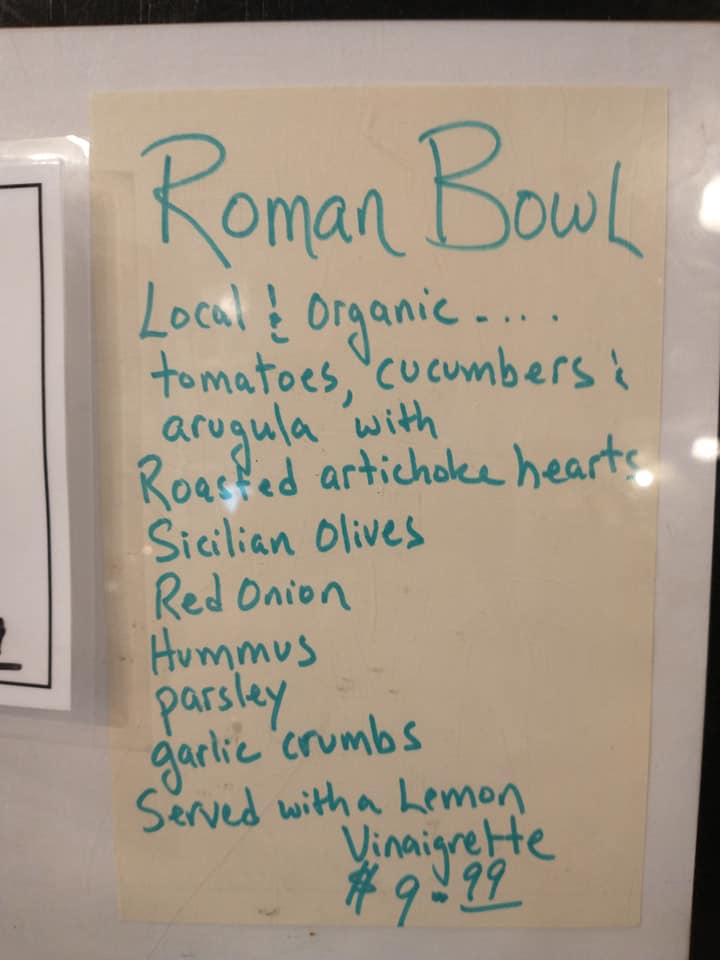 Roman Bowl
Local & Organic - . . .
tomatoes, cucumbers &
arugula with
Roasted artichoke hearts
Sicilian Olives
Red Onion
Hummus
parsley
garlic crumbs
Served with a Lemon
Vinaigrette
$ 9-99